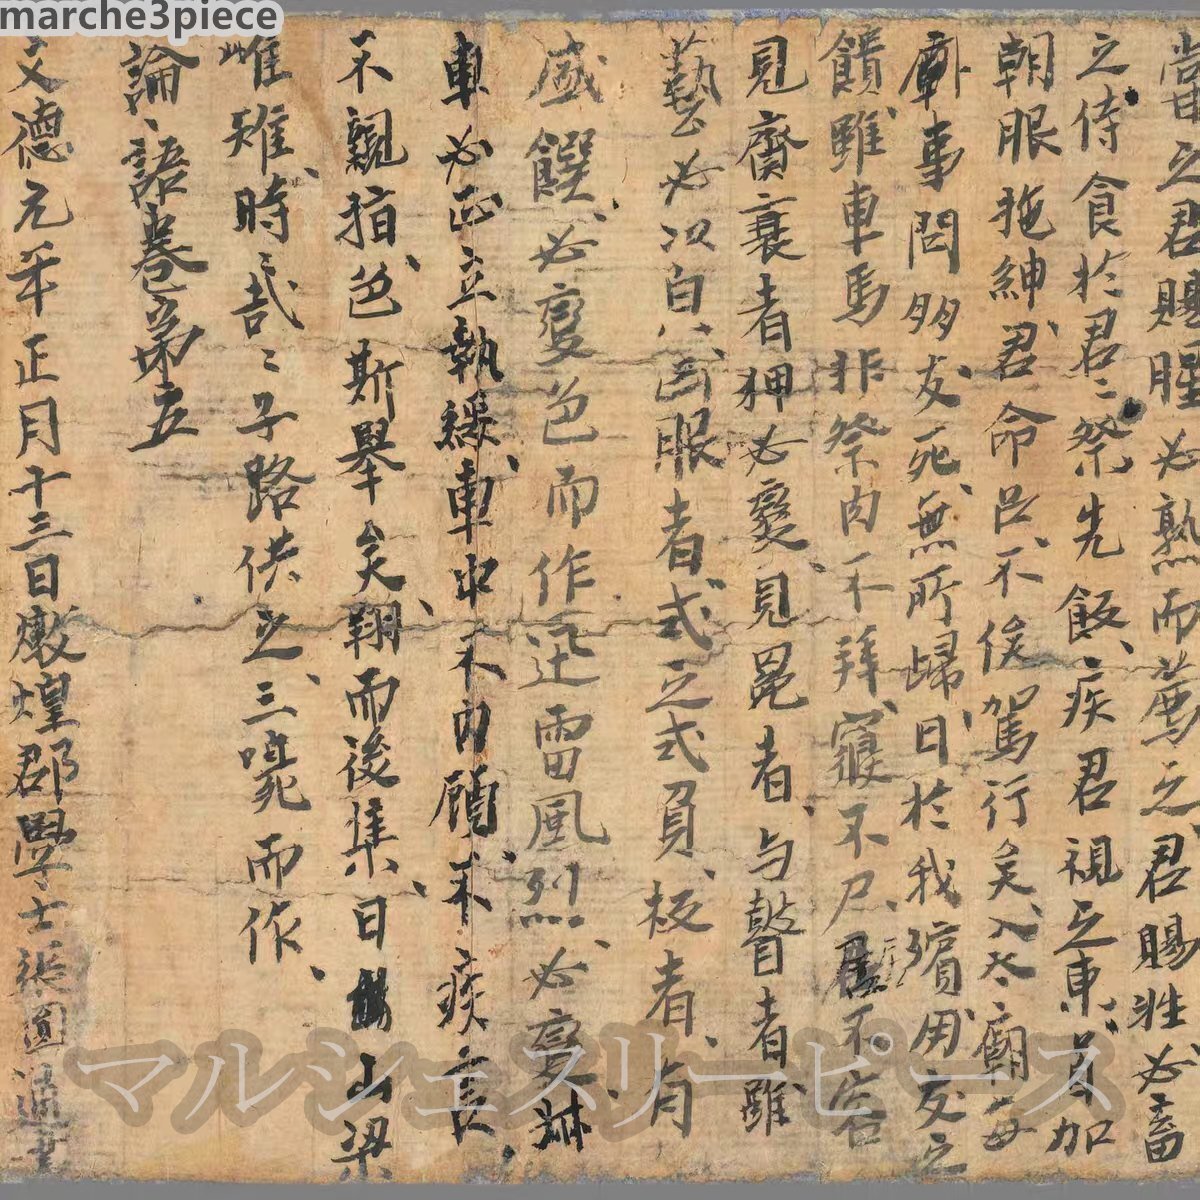 marche3piece
嘗之君賜腥必熟而薦之君賜牲必畜
之侍食於君〻祭先飯疾君視之東首加
朝服拖紳君命召不俟駕行矣入太廟每
事問朋友死無所歸曰於我殯朋友之
饋雖車馬非祭肉不拜寢不尸居不容
見齊衰者狎必變見冕者与瞽者雖
必以白八凶服者式之式負板者有
盛饌必變色而作迅雷風烈必變
車必正立執綏車中不內顧不疾言
不親指色斯舉矣翔而後集曰山梁
雌雉時〻哉〻子路供之三嗅而作
論語卷第五
文德元年正月十三日燉煌郡學士張圓通書
マルシェスリーピース